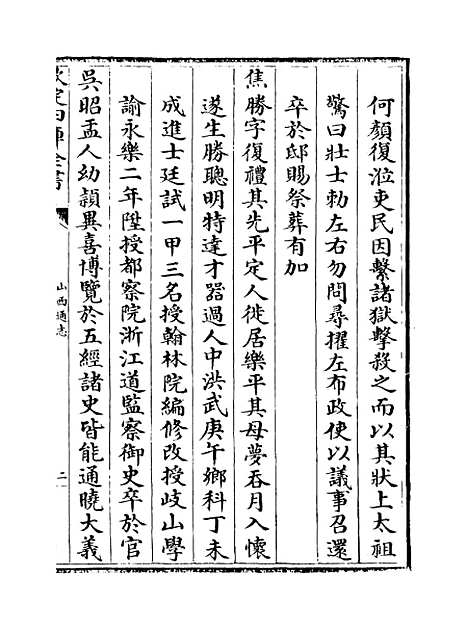 何顔復涖吏民因繫諸獄擊殺之而以其狀上太祖
驚曰壯士勅左右勿問尋擢左布政使以議事召還
卒於邸賜祭葬有加
焦勝字復禮其先平定人徙居樂平其母夢吞月入懷
遂生勝聰明特達才器過人中洪武庚午鄉科丁未
成進士廷試一甲三名授翰林院編修改授歧山學
諭永樂二年陞授都察院浙江道監察御史卒於官
吳昭盂人幼頴異喜博覽於五經諸史皆能通曉大義
欽定四庫全書
山西通志
二